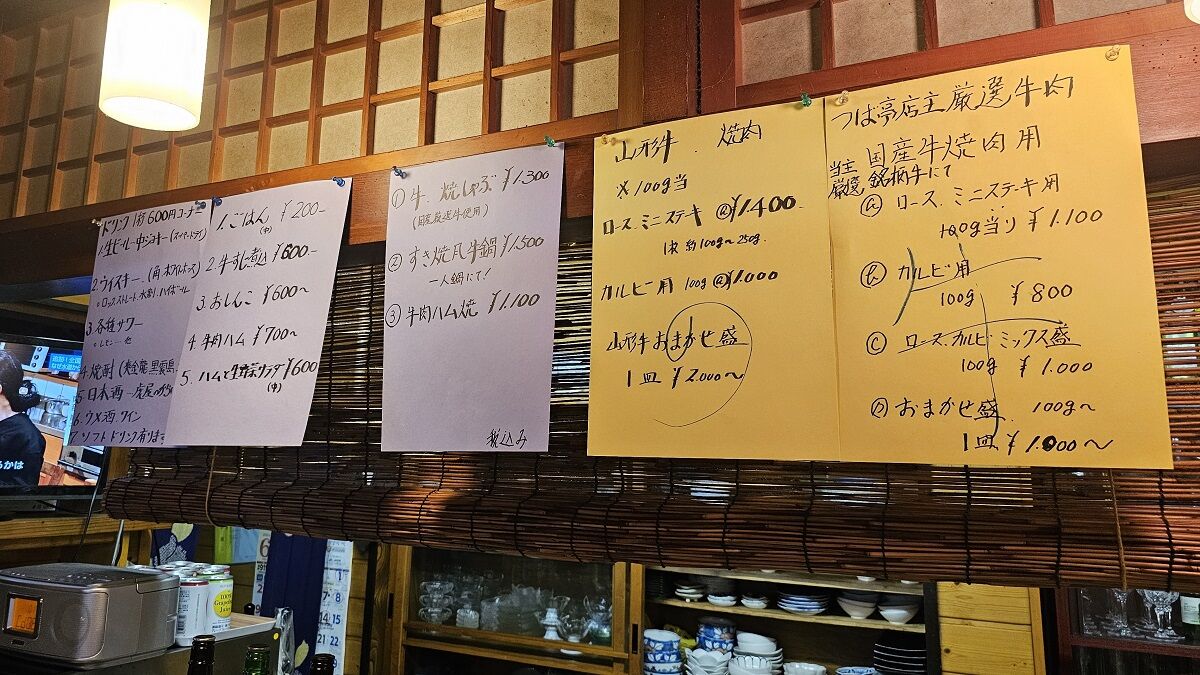 ドリンク 1杯 600円コーナー
1. 生ビール 中ジョッキー(スーパードライ)
2. ウィスキー (角 ホワイトホース)
○ロック、ストレート、水割、ハイボール
3. 各種サワー
○レモン 他
4. 焼酎
5. 日本酒
6. ウメ酒 ワイン
7. ソフトドリンク有ります
1. ごはん(中) ¥200-
2. 牛すじ煮込 ¥600-
3. おしんこ ¥600〜
4. 牛肉ハム ¥700〜
5. ハムと生野菜サラダ ¥600
(中)
① 牛 焼しゃぶ ¥1.300
(国産厳選牛使用)
② すき焼風牛鍋 ¥1.500
一人鍋にて!
③ 牛肉ハム焼 ¥1.100
税込み
山形牛 焼肉
※100g当
ロース、ミニステーキ @¥1.400
1枚 約100g〜250g.
カルビー用 100g @¥1.000
山形牛おまかせ盛
1皿 ¥2.000〜
つば亭店主厳選牛肉
国産牛焼肉用
当主厳選 銘柄牛にて
Ⓐ ロース、ミニステーキ用
100g当り ¥1.100
Ⓑ カルビー用
100g ¥800
Ⓒ ロース、カルビーミックス盛
100g ¥1.000
Ⓓ おまかせ盛 100g〜
1皿 ¥1.000〜
るかは
6
1
7
8
14
15
21
22